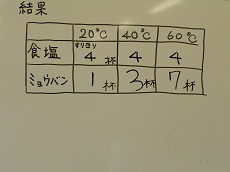 結果
20℃ 40℃ 60℃
食塩 ギリギリ 4杯 4 4
ミョウバン 1杯 3杯 7杯